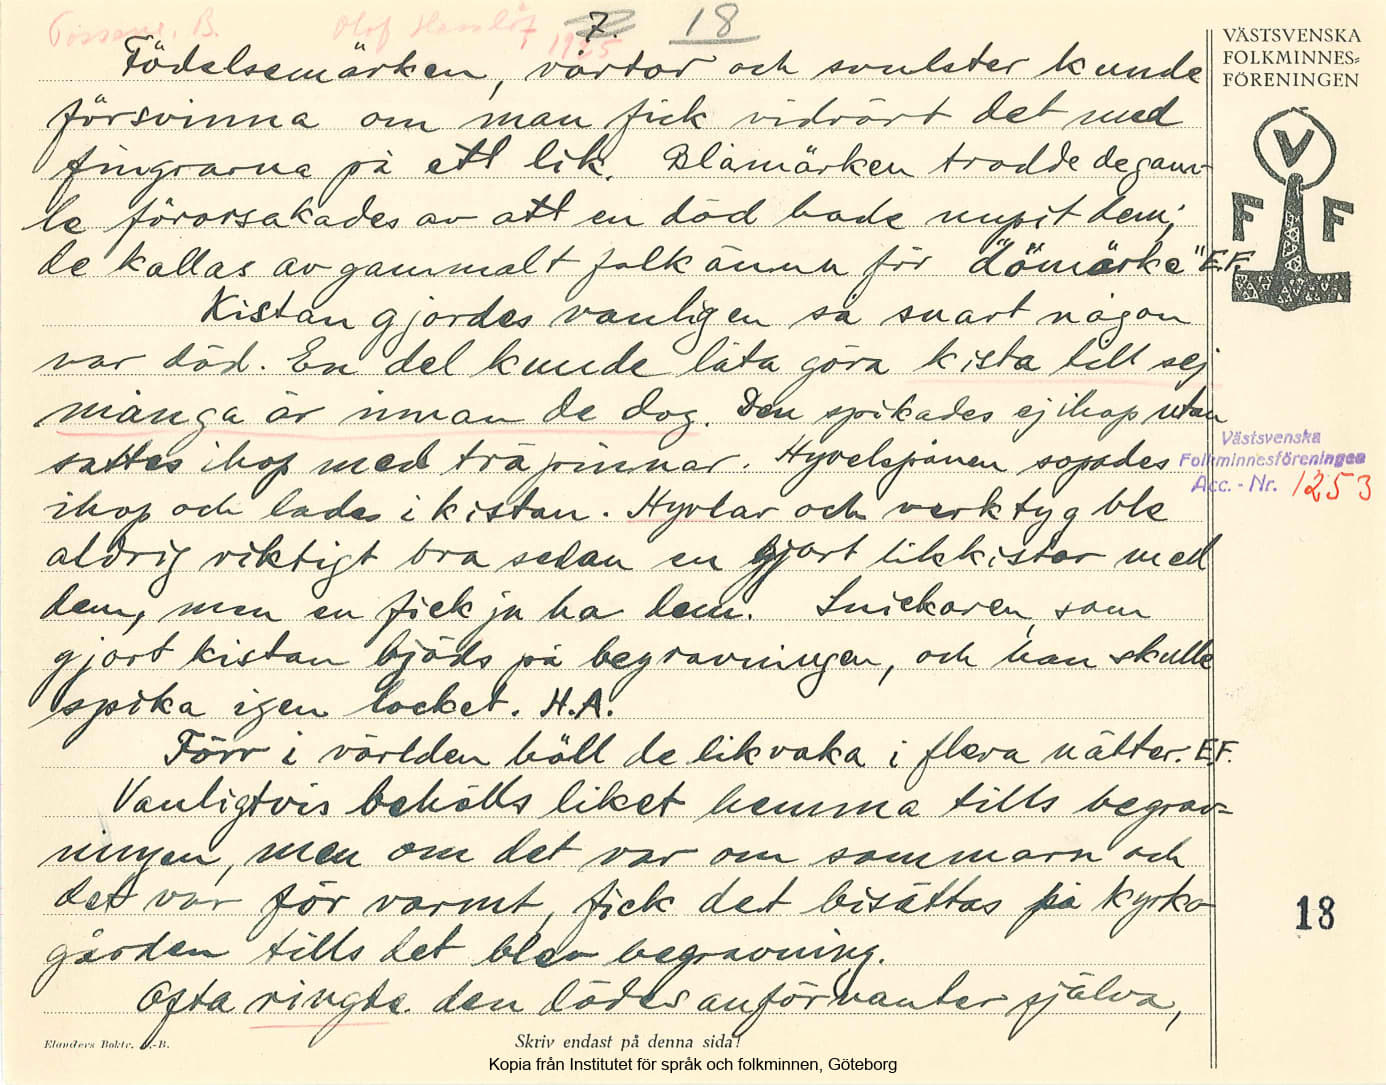 Tossene, B. Olof Hasslöf 1925
7. 18
VÄSTSVENSKA
FOLKMINNES=
FÖRENINGEN
V
F F
Födelsemärken, vårtor och svulster kunde
försvinna om man fick vidrört det med
fingrarna på ett lik. Blåmärken trodde degam-
le förorsakades av att en död hade nupit dem;
de kallas av gammalt folk ännu för "dömärke" E.F.
Kistan gjordes vanligen så snart någon
var död. En del kunde låta göra kista till sej
många år innan de dog. Den spikades ej ihop utan
sattes ihop med träpinnar. Hyvelspånen sopades
ihop och lades i kistan. Hyvlar och verktyg ble
aldrig riktigt bra sedan en gjort likkistor med
dem, men en fick ju ha dem. Snickaren, som
gjort kistan bjöds på begravningen, och han skulle
spika igen locket. H.A.
Förr i världen höll de likvaka i flera nätter. E.F.
Vanligtvis behölls liket hemma tills begrav=
ningen, men om det var om sommarn och
det var för varmt, fick det bisättas på kyrko-
gården tills det blev begravning.
Ofta ringde den dödes anförvanter själva,
Västsvenska
Folkminnesföreningen
Acc. - Nr. 1253
18
Elanders Boktr. A.-B.
Skriv endast på denna sida!
Kopia från Institutet för språk och folkminnen, Göteborg